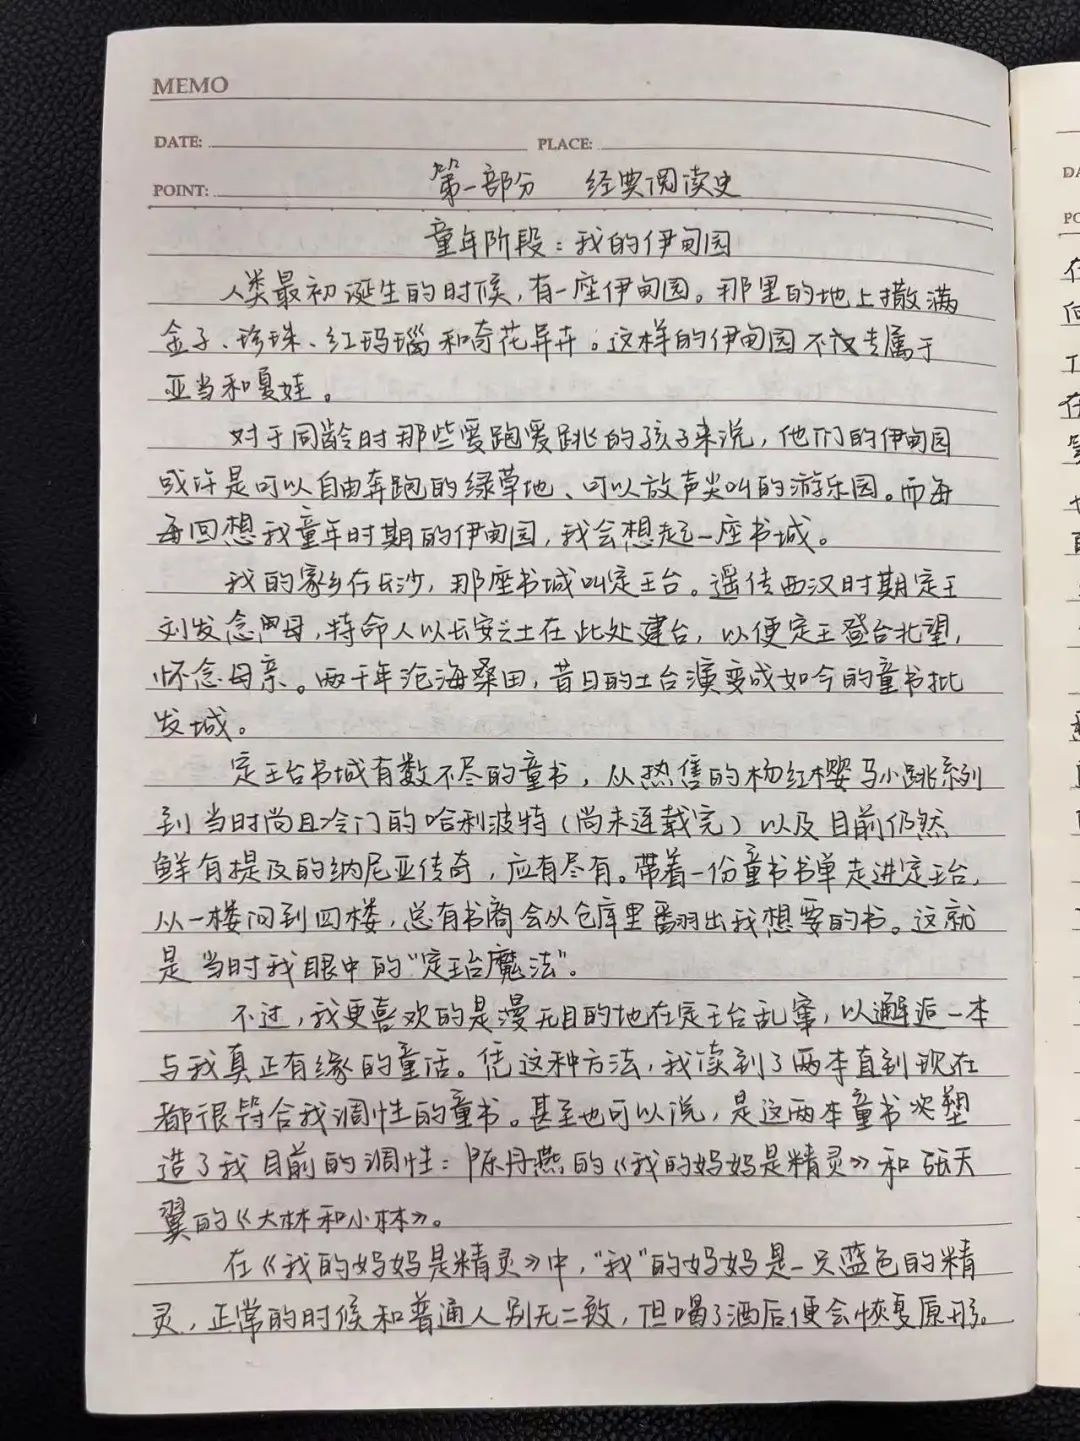 MEMO
DATE: PLACE:
POINT: 第一部分 经典阅读史
童年阶段：我的伊甸园
人类最初诞生的时候，有一座伊甸园。那里的地上撒满
金子、珍珠、红玛瑙和奇花异卉。这样的伊甸园不仅专属于
亚当和夏娃。
对于同龄时那些爱跑爱跳的孩子来说，他们的伊甸园
或许是可以自由奔跑的绿草地、可以放声尖叫的游乐园。而每
每回想我童年时期的伊甸园，我会想起一座书城。
我的家乡在长沙，那座书城叫定王台。遥传西汉时期定王
刘发念母，特命人以长安之土在此处建台，以便定王登台北望，
怀念母亲。两千年沧海桑田，昔日的土台演变成如今的童书批
发城。
定王台书城有数不尽的童书，从热售的杨红樱马小跳系列
到当时尚且冷门的哈利波特（尚未连载完）以及目前仍然
鲜有提及的纳尼亚传奇，应有尽有。带着一份童书书单走进定王台，
从一楼问到四楼，总有书商会从仓库里翻出我想要的书。这就
是当时我眼中的“定王台魔法”。
不过，我更喜欢的是漫无目的地在定王台乱窜，以邂逅一本
与我真正有缘的童话。凭这种方法，我读到了两本直到现在
都很符合我调性的童书。甚至也可以说，是这两本童书塑
造了我目前的调性：陈丹燕的《我的妈妈是精灵》和张天
翼的《大林和小林》。
在《我的妈妈是精灵》中，“我”的妈妈是一只蓝色的精
灵，正常的时候和普通人别无二致，但喝了酒后便会恢复原形。
在
向
工
在